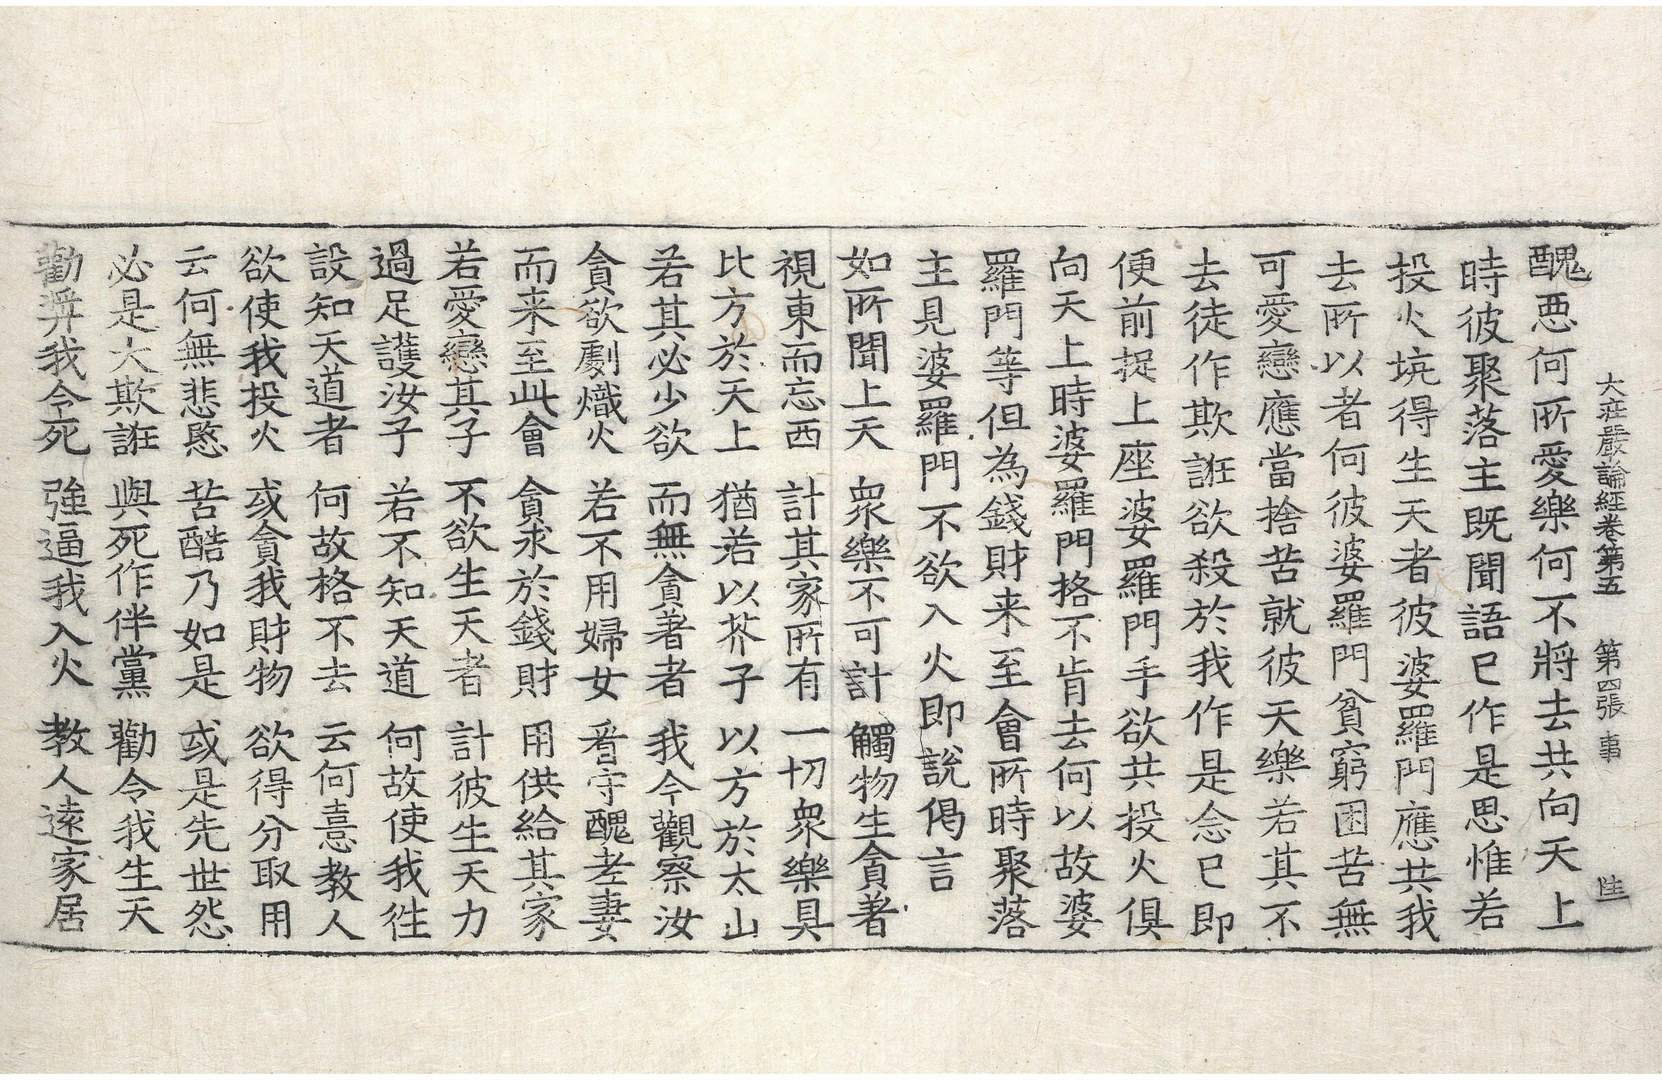 大莊嚴論經卷第五 第四張 事
醜惡何所愛樂何不將去共向天上
時彼聚落主既聞語已作是思惟若
投火坑得生天者彼婆羅門應共我
去所以者何彼婆羅門貧窮困苦無
可愛戀應當捨苦就彼天樂若其不
去徒作欺誑欲殺於我作是念已即
便前捉上座婆羅門手欲共投火俱
向天上時婆羅門格不肯去何以故婆
羅門等但為錢財来至會所時聚落
主見婆羅門不欲入火即說偈言
如所聞上天 衆樂不可計 觸物生貪著
視東而忘西 計其家所有 一切衆樂具
比方於天上 猶若以芥子 以方於太山
若其必少欲 而無貪著者 我今觀察汝
貪欲劇熾火 若不用婦女 看守醜老妻
而来至此會 貪求於錢財 用供給其家
若愛戀其子 不欲生天者 計彼生天力
過足護汝子 若不知天道 何故使我徃
設知天道者 何故格不去 云何憙教人
欲使我投火 或貪我財物 欲得分取用
云何無悲愍 苦酷乃如是 或是先世怨
必是大欺誑 與死作伴黨 勸令我生天
勸弃我令死 強逼我入火 教人遠家居